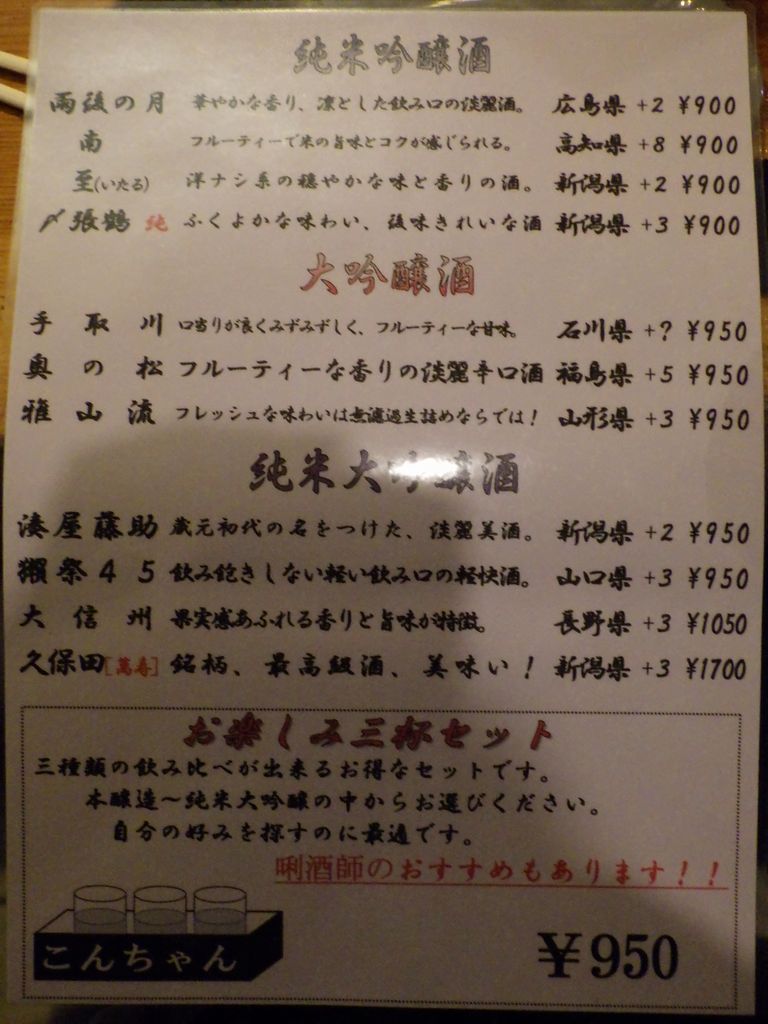 純米吟醸酒
雨後の月 華やかな香り、凛とした飲み口の淡麗酒。 広島県 +2 ¥900
南 フルーティーで米の旨味とコクが感じられる。 高知県 +8 ¥900
至(いたる) 洋ナシ系の穏やかな味と香りの酒。 新潟県 +2 ¥900
〆張鶴 純 ふくよかな味わい、後味きれいな酒 新潟県 +3 ¥900
大吟醸酒
手取川 口当りが良くみずみずしく、フルーティーな甘味。 石川県 +? ¥950
奥の松 フルーティーな香りの淡麗辛口酒 福島県 +5 ¥950
雅山流 フレッシュな味わいは無濾過生詰めならでは！ 山形県 +3 ¥950
純米大吟醸酒
湊屋藤助 蔵元初代の名をつけた、淡麗美酒。 新潟県 +2 ¥950
獺祭45 飲み飽きしない軽い飲み口の軽快酒。 山口県 +3 ¥950
大信州 果実感あふれる香りと旨味が特徴。 長野県 +3 ¥1050
久保田[萬寿] 銘柄、最高級酒、美味い！ 新潟県 +3 ¥1700
お楽しみ三杯セット
三種類の飲み比べが出来るお得なセットです。
本醸造～純米大吟醸の中からお選びください。
自分の好みを探すのに最適です。
唎酒師のおすすめもあります！！
こんちゃん
¥950